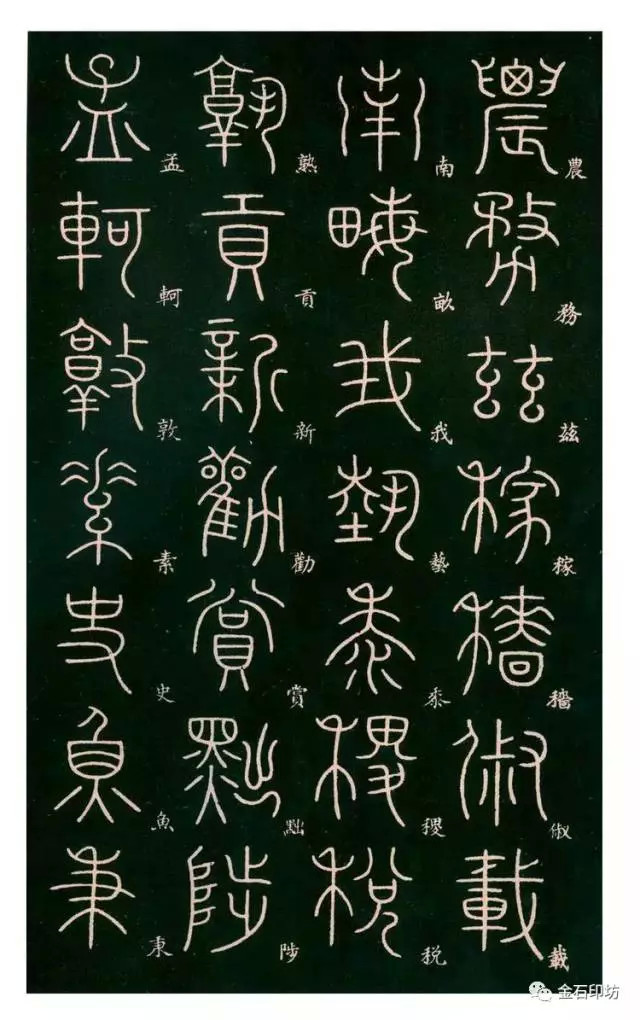 農務茲稼穡俶載
南畝我藝黍稷税
熟貢新勸賞黜陟
孟軻敦素史魚秉
金石印坊